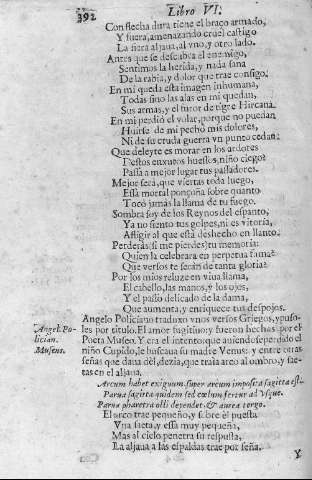 392 Libro VI.
Con flecha dura tiene el braço armado,
Y fuera, amenazando cruel castigo
La fiera aljaua, al vno, y otro lado.
Antes que se descubra el enemigo,
Sentimos la herida, y nada sana
De la rabia, y dolor que trae consigo.
En mi queda esta imagen inhumana,
Todas sino las alas en mi quedan,
Sus armas, y el furor de tigre Hircana.
En mi perdió el volar, porque no puedan
Huirse de mi pecho mis dolores,
Ni de su cruda guerra vn punto cedan:
Que deleyte es morar en los ardores
Destos enxutos huessos, niño ciego?
Passa a mejor lugar tus passadores.
Mejor será, que viertas todo luego,
Essa mortal ponçoña sobre quanto
Tocó jamás la llama de tu fuego.
Sombra soy de los Reynos del espanto,
Ya no siento tus golpes, ni es vitoria,
Afligir al que está deshecho en llanto.
Perderás (si me pierdes) tu memoria:
Quien la celebrara en perpetua fama?
Que versos te serán de tanta gloria?
Por los mios reluze en viua llama,
El cabello, las manos, y los ojos,
Y el passo delicado de la dama,
Que aumenta, y enriquece tus despojos.
Angelo Policiano traduxo vnos versos Griegos, y puso-
Angel. Po- les por titulo. El amor fugitiuo; y fueron hechos por el
lician. Poeta Museo. Y era el intento; que auiendose perdido el
Museus. niño Cupido, le buscaua su madre Venus: y entre otras
señas que daua dél, dezia, que traia arco al ombro, y sae-
tas en el aljaua.
Arcum habet exiguum, super arcum imposita sagitta est.
Parua sagitta quidem sed cœlum fertur ad Vsque.
Parua pharetra olli dependet, & aurea tergo.
El arco trae pequeño, y sobre él puesta
Vna saeta, y essa muy pequeña,
Mas al cielo penetra su respusta,
La aljaua a las espaldas trae por seña.
Y